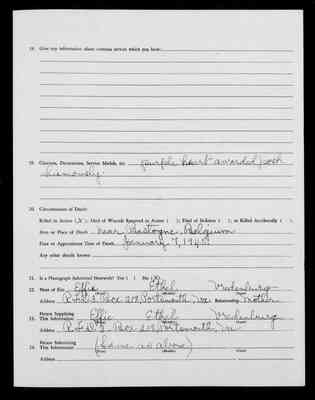 18. Give any information about overseas service which you have:
19. Citations, Decorations, Service Medals, etc. purple heart awarded posth
humously.
20. Circumstances of Death:
Killed in Action (X); Died of Wounds Received in Action ( ); Died of Sickness ( ); or Killed Accidently ( ).
Area or Place of Death near Bastogne, Belguim
Date or Approximate Time of Death January 7, 1945
Any other details known
21. Is a Photograph Submitted Herewith? Yes ( ) No (X)
22. Name of Kin Effie Ethel Vredenburg
(First) (Middle) (Last)
Address R.F.D. 2, Box Portsmouth, Va Relationship Mother
23. Person Supplying This Information Effie Ethel Vredenburg
(First) (Middle) (Last)
Address R.F.D. 2, Box Portsmouth, Va
24. Person Submitting This Information (Same as above)
(First) (Middle) (Last)
Address